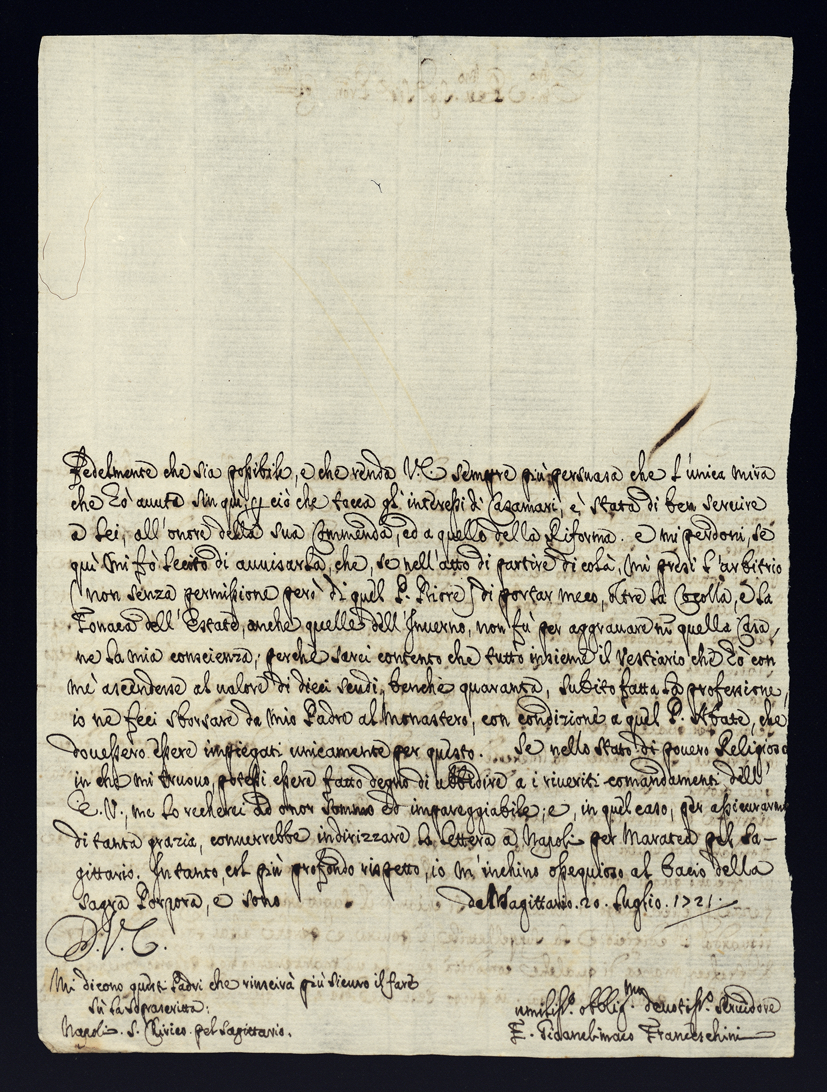 fedelmente che sia possibile, e che renda V E sempre più persuasa che l'unica mira
che hò avuta sin qui, ciò che tocca gl'interessi di Casamari, è stata di ben servire
a Lei, all'onore della sua Commenda, ed a quello della Riforma. e mi perdoni, se
quì mi fò lecito di avvisarla, che, se nell'atto di partire di colà, mi presi l'arbitrio
(non senza permissione però di quel P. Priore) di portar meco, oltre la Cogolla, e la
Tonaca dell'Estate, anche quelle dell'Inverno, non fù per aggravare ni quella Casa,
ne la mia conscienza; perche sarei contento che tutto insieme il Vestiario che hò con
mè ascendesse al valore di dieci scudi, benche quaranta, subito fatta la professione,
io ne feci sborsare da mio Padre al Monastero, con condizione a quel P. Abate, che
dovessero essere impiegati unicamente per questo. Se nello stato di povero Religioso
in che mi truovo, potessi essere fatto degno di ubbidire a i riveriti comandamenti dell'
E. V., me lo recherei ad onor sommo ed impareggiabile; e, in quel caso, per assicurarmi
di tanta grazia, converrebbe indirizzare la lettera a Napoli per Maratea pel Sa-
gittario. Intanto, col più profondo rispetto, io m'inchino ossequioso al bacio della
sagra Porpora, e sono del Sagittario. 20. luglio. 1721.
D. V. E.
Mi dicono questi Padri che riuscirà più sicuro il fare
sù la soprascritta:
Napoli. S. Chirico. pel Sagittario.
umiliss.º obblig.mo devotiss.º servidore
F. Franceschini